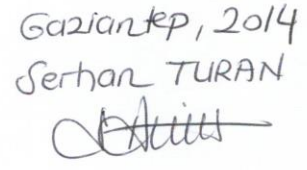 Gaziantep, 2014
Serhan TURAN